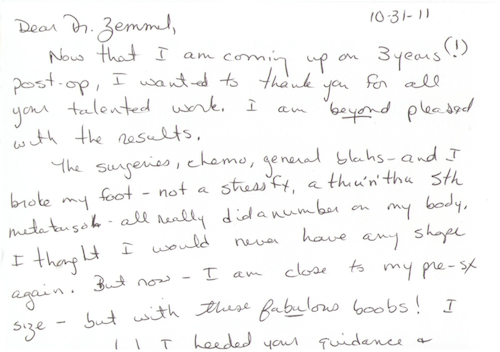 10-31-11
Dear Dr. Zemmel,
Now that I am coming up on 3 years (!)
post-op, I wanted to thank you for all
your talented work. I am beyond pleased
with the results.
The surgeries, chemo, general blahs - and I
broke my foot - not a stress fx, a thru'n'thru 5th
metatarsal - all really did a number on my body.
I thought I would never have any shape
again. But now - I am close to my pre-sx
size - but with these fabulous boobs! I
I heeded your guidance &